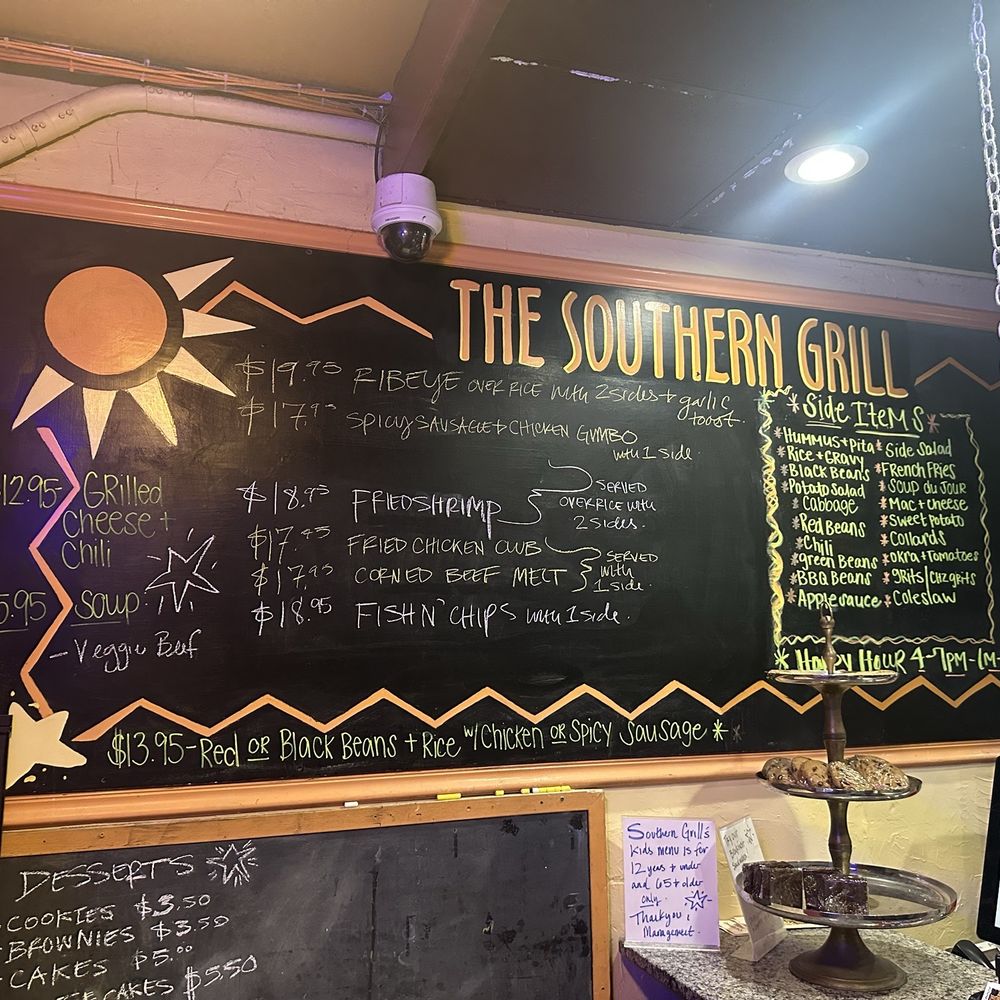 THE SOUTHERN GRILL
$19.95 RIBEYE OVER RICE with 2 sides + garlic
toast.
$17.95 SPICY SAUSAGE + CHICKEN GUMBO
with 1 side.
$18.95 FRIED SHRIMP
SERVED
OVER RICE with
2 sides.
$17.95 FRIED CHICKEN CLUB
$17.95 CORNED BEEF MELT
SERVED
with
1 side.
$18.95 FISH N' CHIPS with 1 side.
12.95- GRilled
Cheese +
Chili
5.95 Soup
- Veggie Beef
*Side Items*
*Hummus + pita
*Rice + GRAVY
*Black Beans
*Potato Salad
*Cabbage
*Red Beans
*Chili
*green Beans
*BBQ Beans
*Applesauce
*Side Salad
*French Fries
*Soup du Jour
*Mac + Cheese
*Sweet Potato
*Collards
*Okra + Tomatoes
*grits/chz grits
*Coleslaw
*Happy Hour 4-7pm-(M-
$13.95-Red OR Black Beans + Rice w/Chicken OR Spicy Sausage*
DESSERTS
-COOKIES $3.50
-BROWNIES $3.50
-CAKES $5.00
CAKES $5.50
Southern Grill's
kids menu is for
12 years + under
and 65 + older
only.
Thank you!
Management.